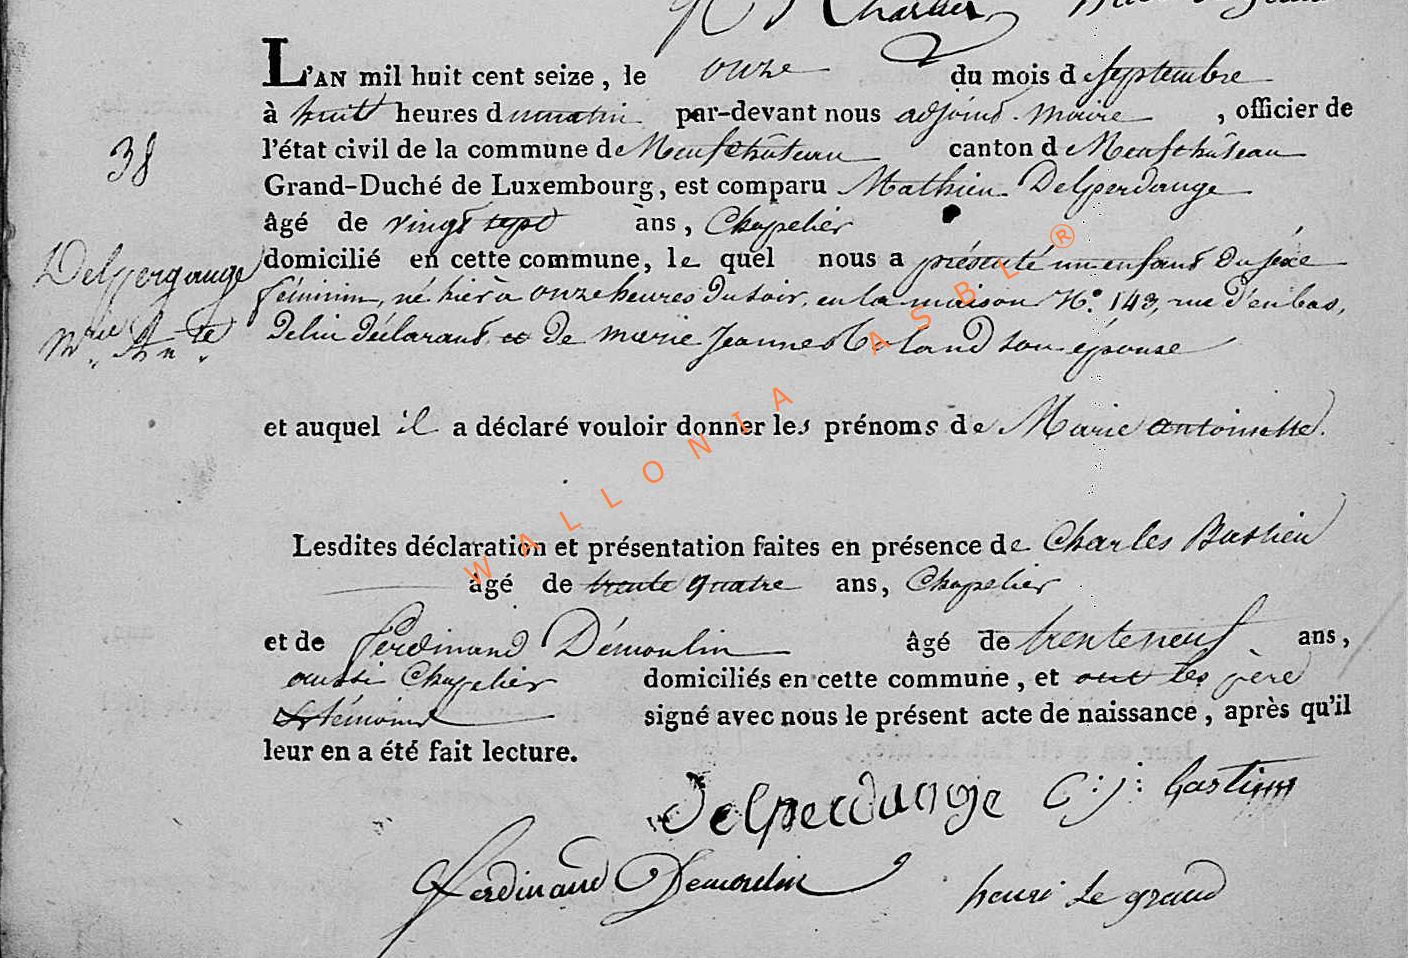 Charlier
L'AN mil huit cent seize, le onze du mois de septembre
à huit heures du matin par-devant nous adjoint-maire, officier de
38
l'état civil de la commune de Neufchâteau canton de Neufchâteau
Grand-Duché de Luxembourg, est comparu Mathieu Delperdange
âgé de vingt sept ans, Chapelier
Delpergange
domicilié en cette commune, le quel nous a présenté un enfant du séxe
féminin, né hier à onze heures du soir, en la maison N.° 143, rue d'en bas,
mrie Ante
de lui déclarant et de marie Jeanne Coland son épouse
et auquel il a déclaré vouloir donner les prénoms de Marie antoinette.
Lesdites déclaration et présentation faites en présence de Charles Bastien
âgé de trente quatre ans, Chapelier
et de Ferdinand Démoulin âgé de trente neuf ans,
aussi Chapelier domiciliés en cette commune, et ont les père
et témoins signé avec nous le présent acte de naissance, après qu'il
leur en a été fait lecture.
Delperdange C: j: bastin
Ferdinand Demoulin henri Le grand
WALLONIA ASBL ®